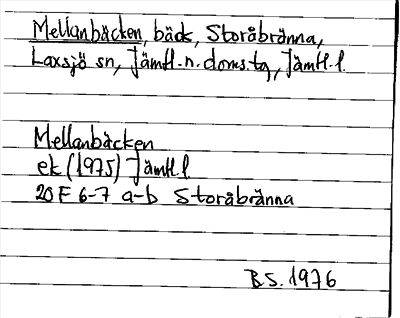 Mellanbäcken, bäck, Storåbränna,
Laxsjö sn, Jämtl. n. doms. tg, Jämtl. l.
Mellanbäcken
ek (1975) Jämtl. l
20 F 6-7 a-b Storåbränna
B S. 1976